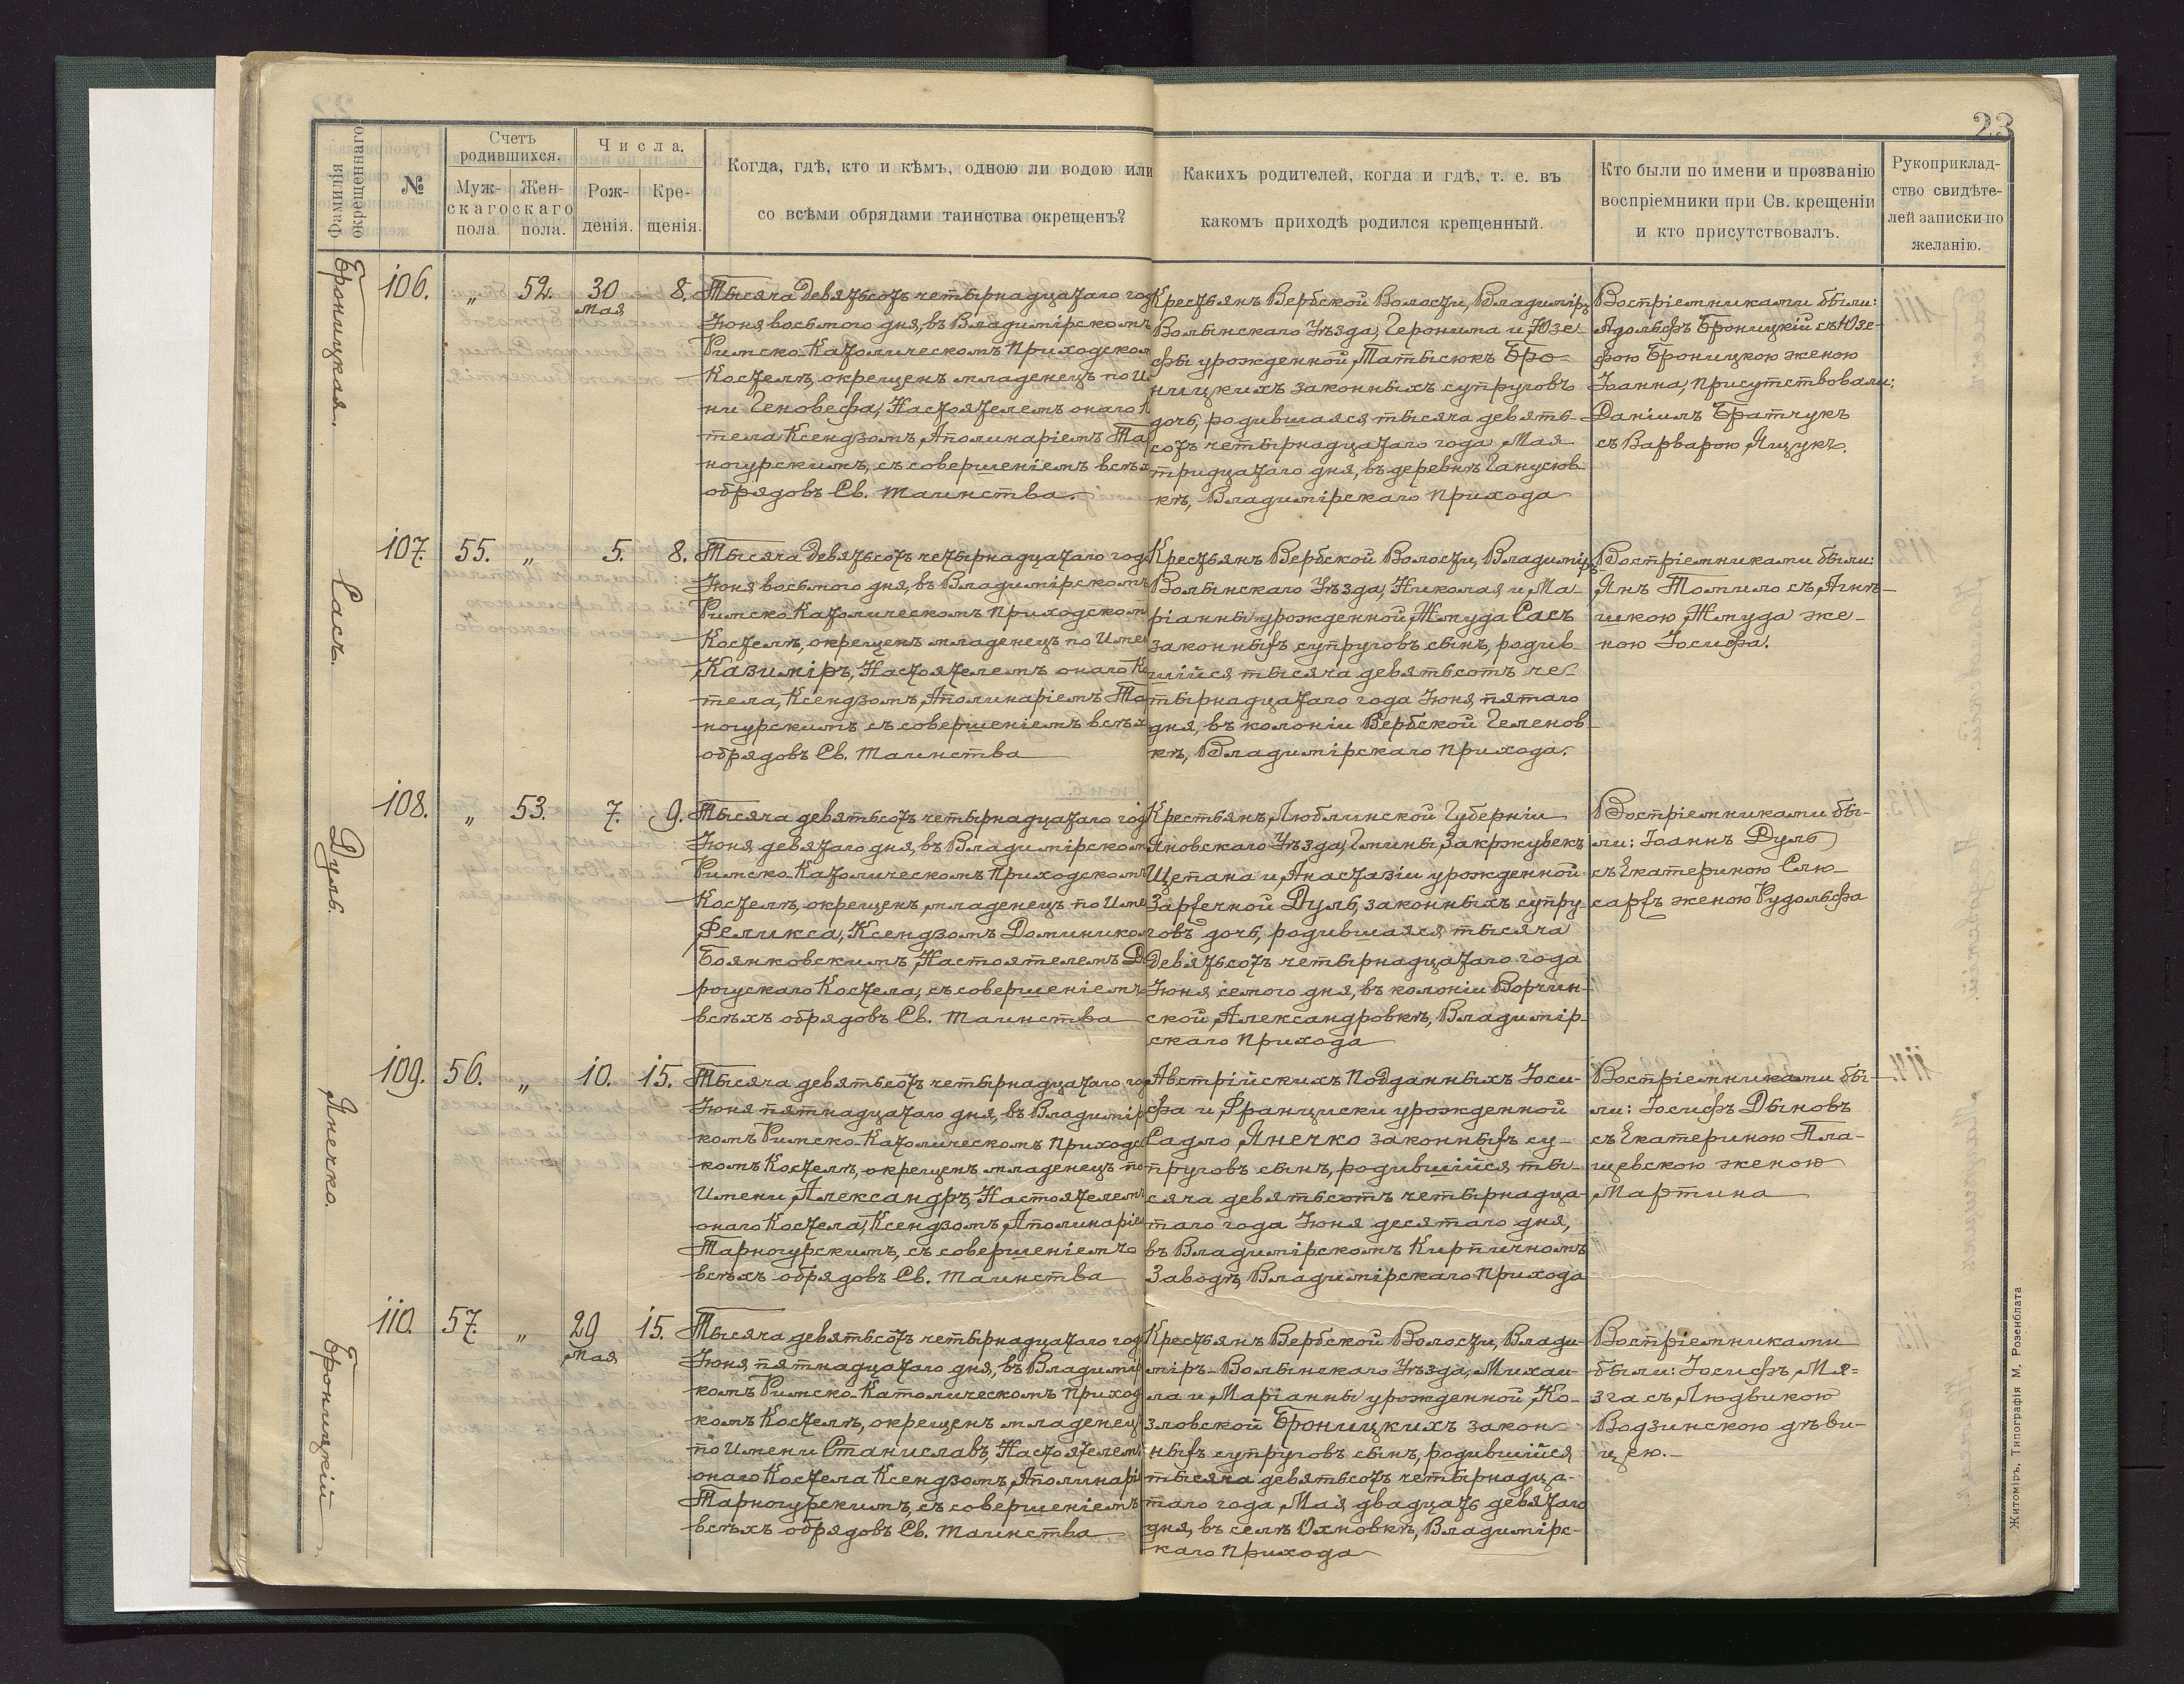 23
Фамилія окрещеннаго
№
Счетъ родившихся.
Мужскаго пола.
Женскаго пола.
Числа.
Рожденія.
Крещенія.
Когда, гдѣ, кто и кѣмъ, одною ли водою или
со всѣми обрядами таинства окрещенъ?
Какихъ родителей, когда и гдѣ, т. е. въ
какомъ приходѣ родился крещенный.
Кто были по имени и прозванію
воспріемники при Св. крещеніи
и кто присутствовалъ.
Рукоприклад-
ство свидѣте-
лей записки по
желанію.
Броницкая.
106.
„
52.
30
Мая
8.
Тысяча девятьсотъ четырнадцатаго год
Іюня восьмого дня, въ Владимірскомъ
Римско-Католическомъ Приходском
Костелѣ, окрещенъ младенецъ по И
ни Геновефа, Настоятелемъ онаго К
тела Ксендзомъ Аполинаріемъ Та
ногурскимъ, съ совершеніемъ всѣх
обрядовъ Св. Таинства.
Крестьянъ Вербской Волости, Владиміръ
Волынскаго Уѣзда, Геронима и Юзе-
фы урожденной Матысюкъ Бро-
ницкихъ законныхъ супруговъ
дочь, родившаяся тысяча девять-
сотъ четырнадцатаго года Мая
тридцатаго дня, въ деревнѣ Ганусюв-
кѣ, Владимірскаго Прихода
Воспріемниками были:
Адольфъ Броницкій съ Юзе-
фою Броницкою женою
Іоанна, присутствовали:
Даніилъ Братчукъ
съ Варварою Ящукъ.
Сасъ.
107.
55.
„
5.
8.
Тысяча девятьсотъ четырнадцатаго год
Іюня восьмого дня, въ Владимірскомъ
Римско-Католическомъ Приходском
Костелѣ, окрещенъ младенецъ по Име
Казиміръ, Настоятелемъ онаго Ко
тела, Ксендзомъ Аполинаріемъ Та
ногурскимъ съ совершеніемъ всѣх
обрядовъ Св. Таинства
Крестьянъ Вербской Волости, Владиміръ-
Волынскаго Уѣзда, Николая и Ма-
ріанны урожденной Жмуда Сасъ
законныхъ супруговъ сынъ, родив-
шійся тысяча девятьсотъ че-
тырнадцатаго года Іюня пятаго
дня, въ колоніи Вербской Геленов-
кѣ, Владимірскаго Прихода.
Воспріемниками были:
Янъ Томило съ Агнѣ-
шкою Жмуда же-
ною Іосифа.
Дуль.
108.
„
53.
7.
9.
Тысяча девятьсотъ четырнадцатаго год
Іюня девятаго дня, въ Владимірском
Римско-Католическомъ Приходскомъ
Костелѣ, окрещенъ младенецъ по Име
Феликса, Ксендзомъ Домиником
Боянковскимъ, Настоятелемъ До
рогускаго Костела, съ совершеніемъ
всѣхъ обрядовъ Св. Таинства
Крестьянъ Люблинской Губерніи
Яновскаго Уѣзда, Гмины Закржувекъ
Щепана и Анастазіи урожденной
Заржечной Дуль, законныхъ супру-
говъ дочь, родившаяся тысяча
девятьсотъ четырнадцатаго года
Іюня седмого дня, въ колоніи Ворчин-
ской Александровкѣ, Владимір-
скаго Прихода
Воспріемниками бы-
ли: Іоаннъ Дуль
съ Екатериною Слю-
саржъ женою Рудольфа
Янечко.
109.
56.
„
10.
15.
Тысяча девятьсотъ четырнадцатаго го
Іюня пятнадцатаго дня, въ Владимір
комъ Римско-Католическомъ Приходс
комъ Костелѣ, окрещенъ младенецъ по
Имени Александръ, Настоятелемъ
онаго Костела, Ксендзомъ Аполинаріе
Тарногурскимъ, съ совершеніемъ
всѣхъ обрядовъ Св. Таинства
Австрійскихъ Подданныхъ Іоси-
фа и Франциски урожденной
Садло Янечко законныхъ су-
пруговъ сынъ, родившійся ты-
сяча девятьсотъ четырнадца-
таго года Іюня десятаго дня,
въ Владимірскомъ Кирпичномъ
Заводѣ, Владимірскаго Прихода
Воспріемниками бы-
ли: Іосифъ Дыновъ
съ Екатериною Пла-
щевскою женою
Мартина
Броницкій
110.
57.
„
29
Мая
15.
Тысяча девятьсотъ четырнадцатаго год
Іюня пятнадцатаго дня, въ Владимір
комъ Римско-Католическомъ Приход
комъ Костелѣ, окрещенъ младенец
по Имени Станиславъ, Настоятелем
онаго Костела Ксендзомъ Аполинарі
Тарногурскимъ, съ совершеніемъ
всѣхъ обрядовъ Св. Таинства
Крестьянъ Вербской Волости, Влади-
міръ-Волынскаго Уѣзда, Михаи-
ла и Маріанны урожденной Ко-
зловской Броницкихъ закон-
ныхъ супруговъ сынъ, родившійся
тысяча девятьсотъ четырнадца-
таго года Мая двадцать девятаго
дня, въ селѣ Охновкѣ, Владимірс-
каго Прихода
Воспріемниками
были: Іосифъ Мя-
зга съ Людвикою
Водзинскою дѣви-
цею.
Житоміръ, Типографія М. Розенблата